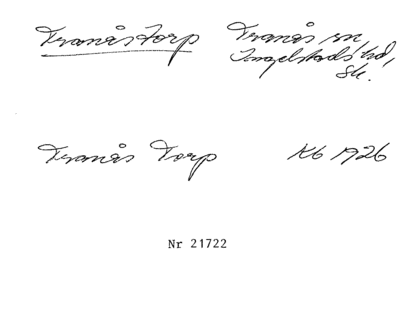 Tranåstorp Tranås sn,
Ingelstads hd,
Sk.
Tranås Torp Kb 1926
Nr 21722